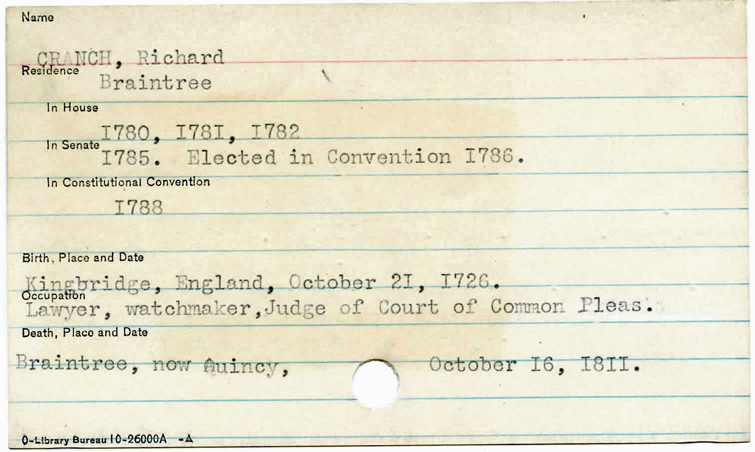 Name
CRANCH, Richard
Residence
Braintree
In House
1780, 1781, 1782
In Senate
1785. Elected in Convention 1786.
In Constitutional Convention
1788
Birth, Place and Date
Kingbridge, England, October 21, 1726.
Occupation
Lawyer, watchmaker,Judge of Court of Common Pleas.
Death, Place and Date
Braintree, now Quincy, October 16, 1811.
O-Library Bureau 10-26000A -A